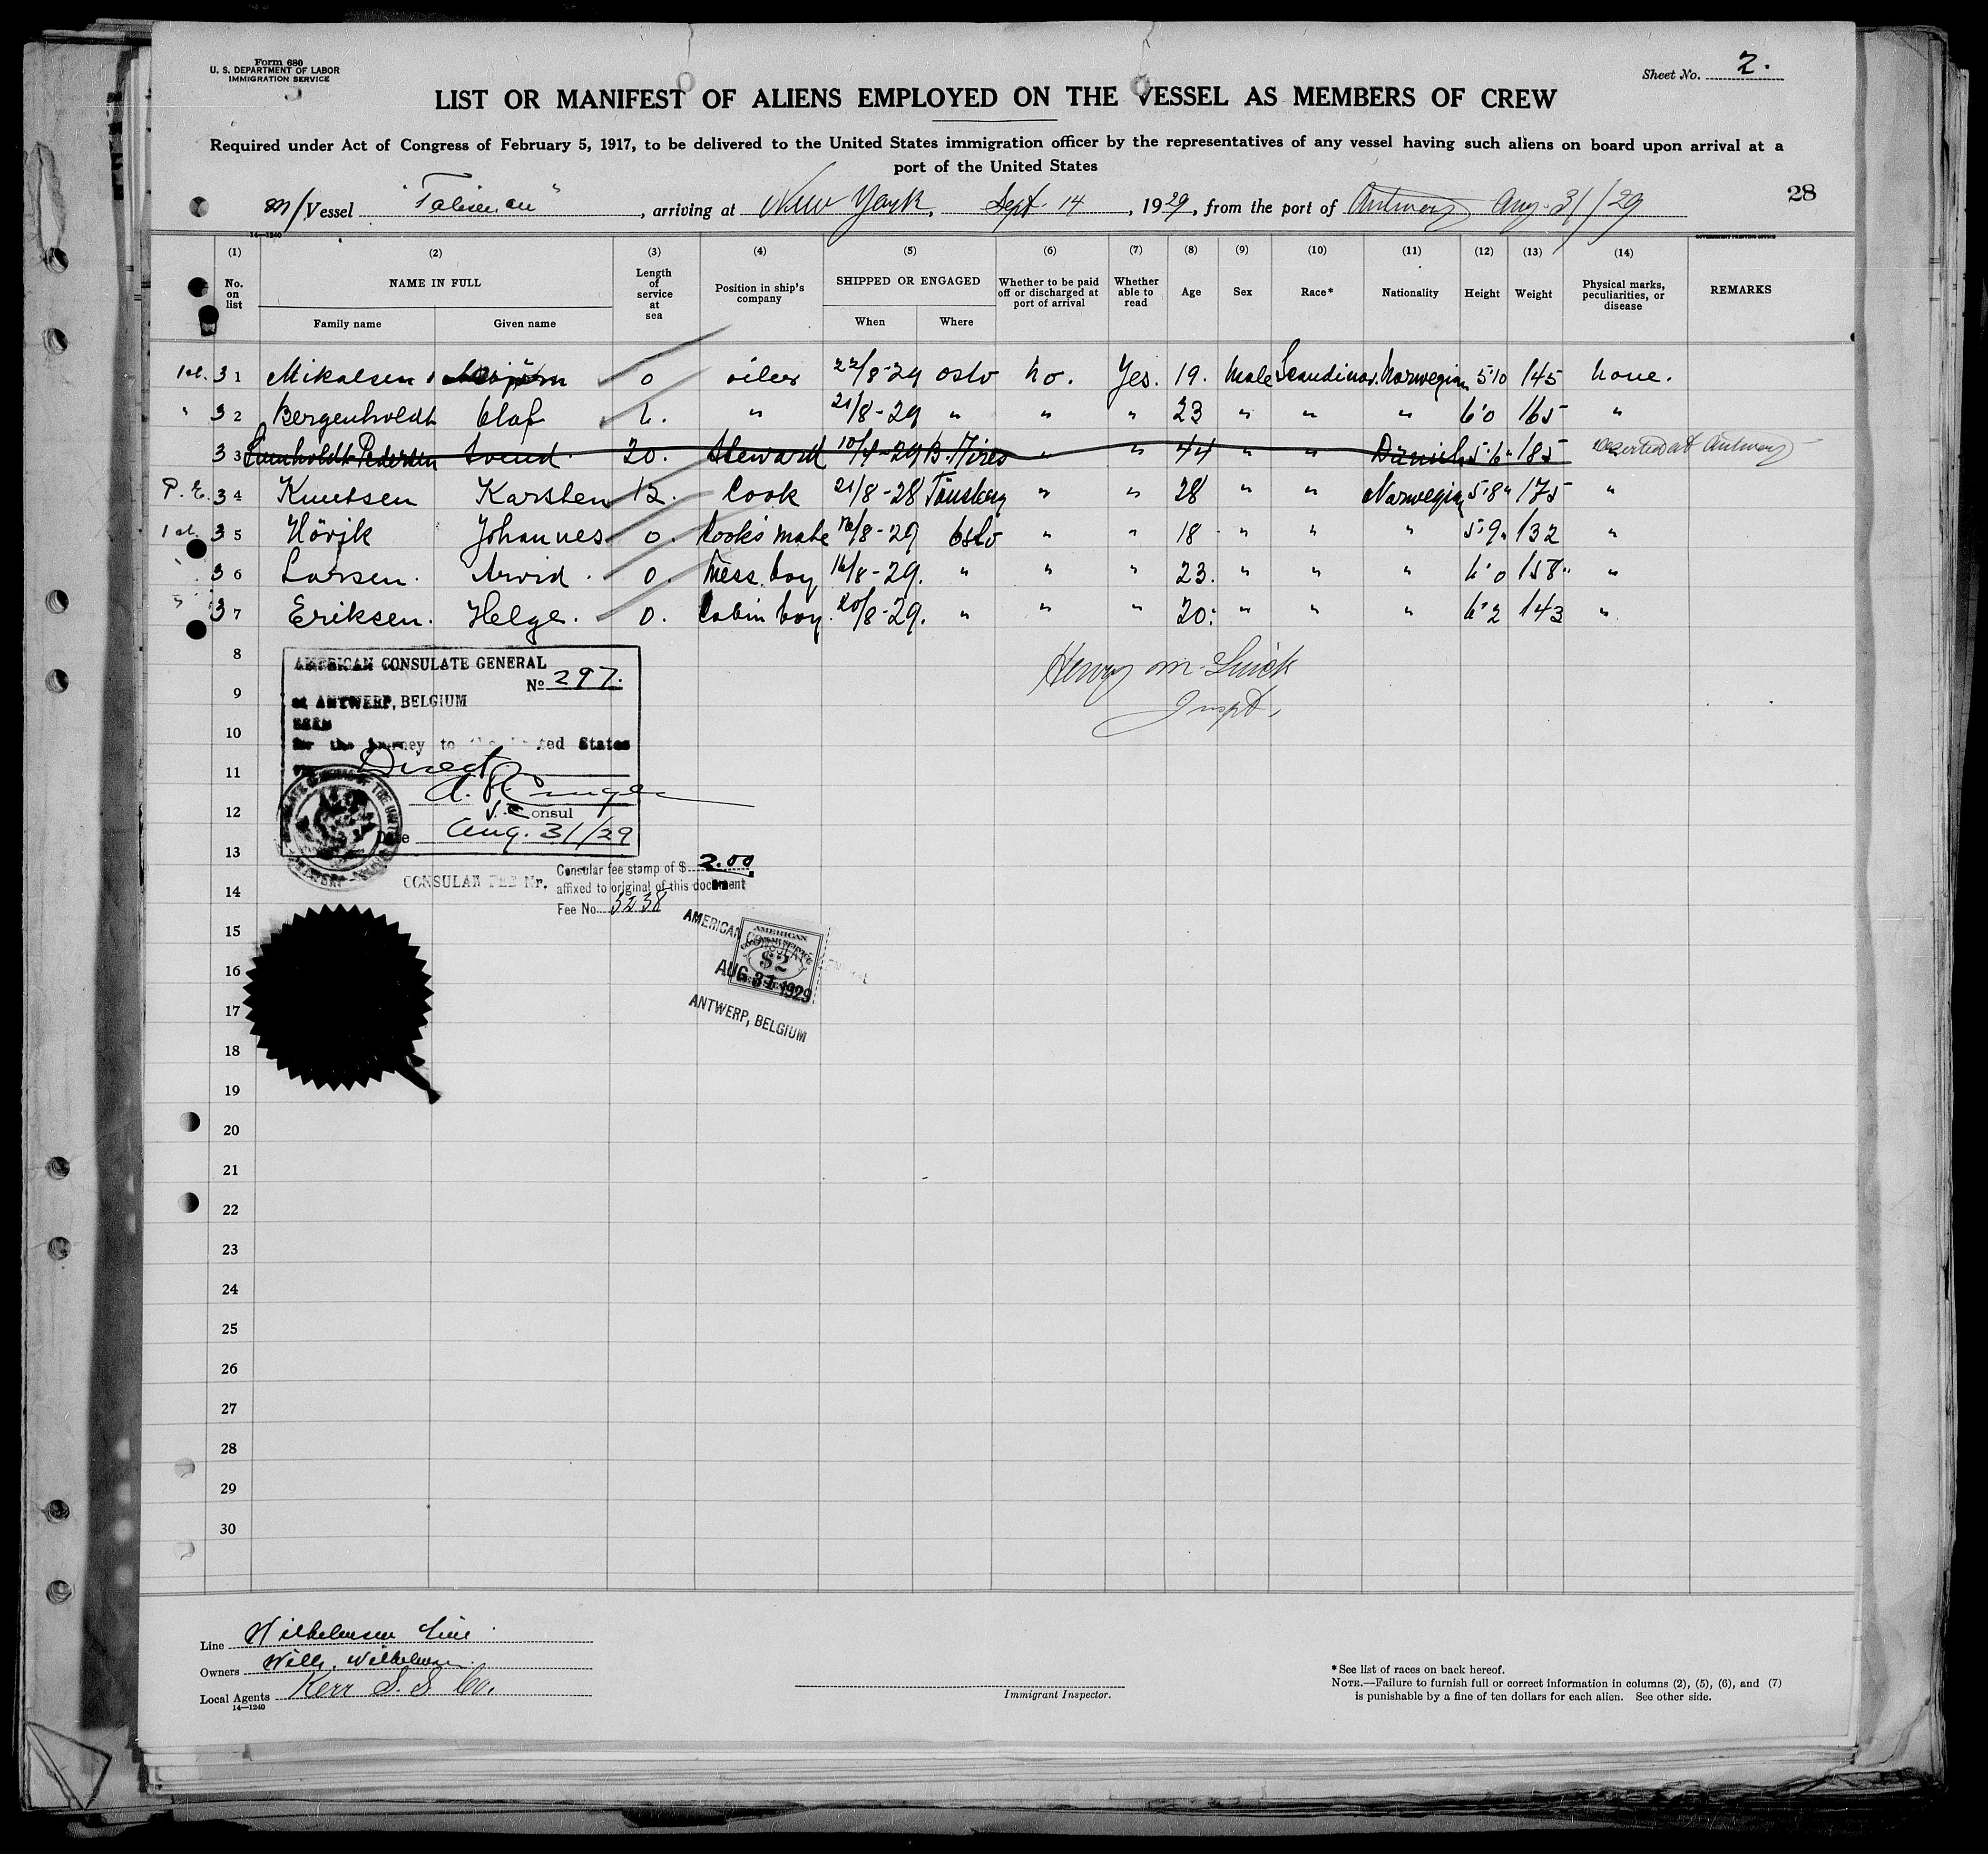 Form 680
U. S. DEPARTMENT OF LABOR
IMMIGRATION SERVICE
Sheet No. 2.
LIST OR MANIFEST OF ALIENS EMPLOYED ON THE VESSEL AS MEMBERS OF CREW
Required under Act of Congress of February 5, 1917, to be delivered to the United States immigration officer by the representatives of any vessel having such aliens on board upon arrival at a
port of the United States
28
m/Vessel "Talisman", arriving at New York, Sept. 14, 1929, from the port of Antwerp Aug. 31/29
14—1240
GOVERNMENT PRINTING OFFICE
(1) (2) (3) (4) (5) (6) (7) (8) (9) (10) (11) (12) (13) (14)
No. on list NAME IN FULL Family name Given name Length of service at sea Position in ship's company SHIPPED OR ENGAGED When Where Whether to be paid off or discharged at port of arrival Whether able to read Age Sex Race* Nationality Height Weight Physical marks, peculiarities, or disease REMARKS
1st. 31 Mikalsen 0 oiler 22/8-29 Oslo No. Yes. 19. Male Scandinav. Norwegian 5'10 145 None.
" 32 Bergenholdt Olaf " 21/8-29 " " " 23 " " " 6'0 165 "
33 Svend 20. Steward 10/4-29 B. Aires " " 44 " " Danish 5'6" 185 " Deserted at Antwerp
P. E. 34 Knutsen Karsten 12. Cook 21/8-28 Tönsberg " " 28 " " Norwegian 5'8" 175 "
1st. 35 Hövik Johannes 0. Cook's mate /8-29 Oslo " " 18 " " " 5'9" 132 "
" 36 Larsen. Arvid. 0. Mess boy 16/8-29. " " " 23. " " " 6'0 158 "
" 37 Eriksen. Helge. 0. Cabin boy. 20/8-29. " " " 20. " " " 6'2 143 "
8
AMERICAN CONSULATE GENERAL
No 297.
9
at ANTWERP, BELGIUM
SEEN
Henry M.
Inspt.
10
for the journey to the United States
11
Direct
12
V. Consul
Date Aug. 31/29
13
Consular fee stamp of $ 2.00
CONSULAR FEE Nr. affixed to original of this document
14
Fee No. 5238
15
AMERICAN CONSULATE GENERAL
AMERICAN
$2
16
AUG 31 1929
17
ANTWERP, BELGIUM
18
19
20
21
22
23
24
25
26
27
28
29
30
Line Wilhelmsen Line
Owners Wilh. Wilhelmsen
Local Agents Kerr S. S. Co.
14—1240
Immigrant Inspector.
*See list of races on back hereof.
NOTE.—Failure to furnish full or correct information in columns (2), (5), (6), and (7)
is punishable by a fine of ten dollars for each alien. See other side.